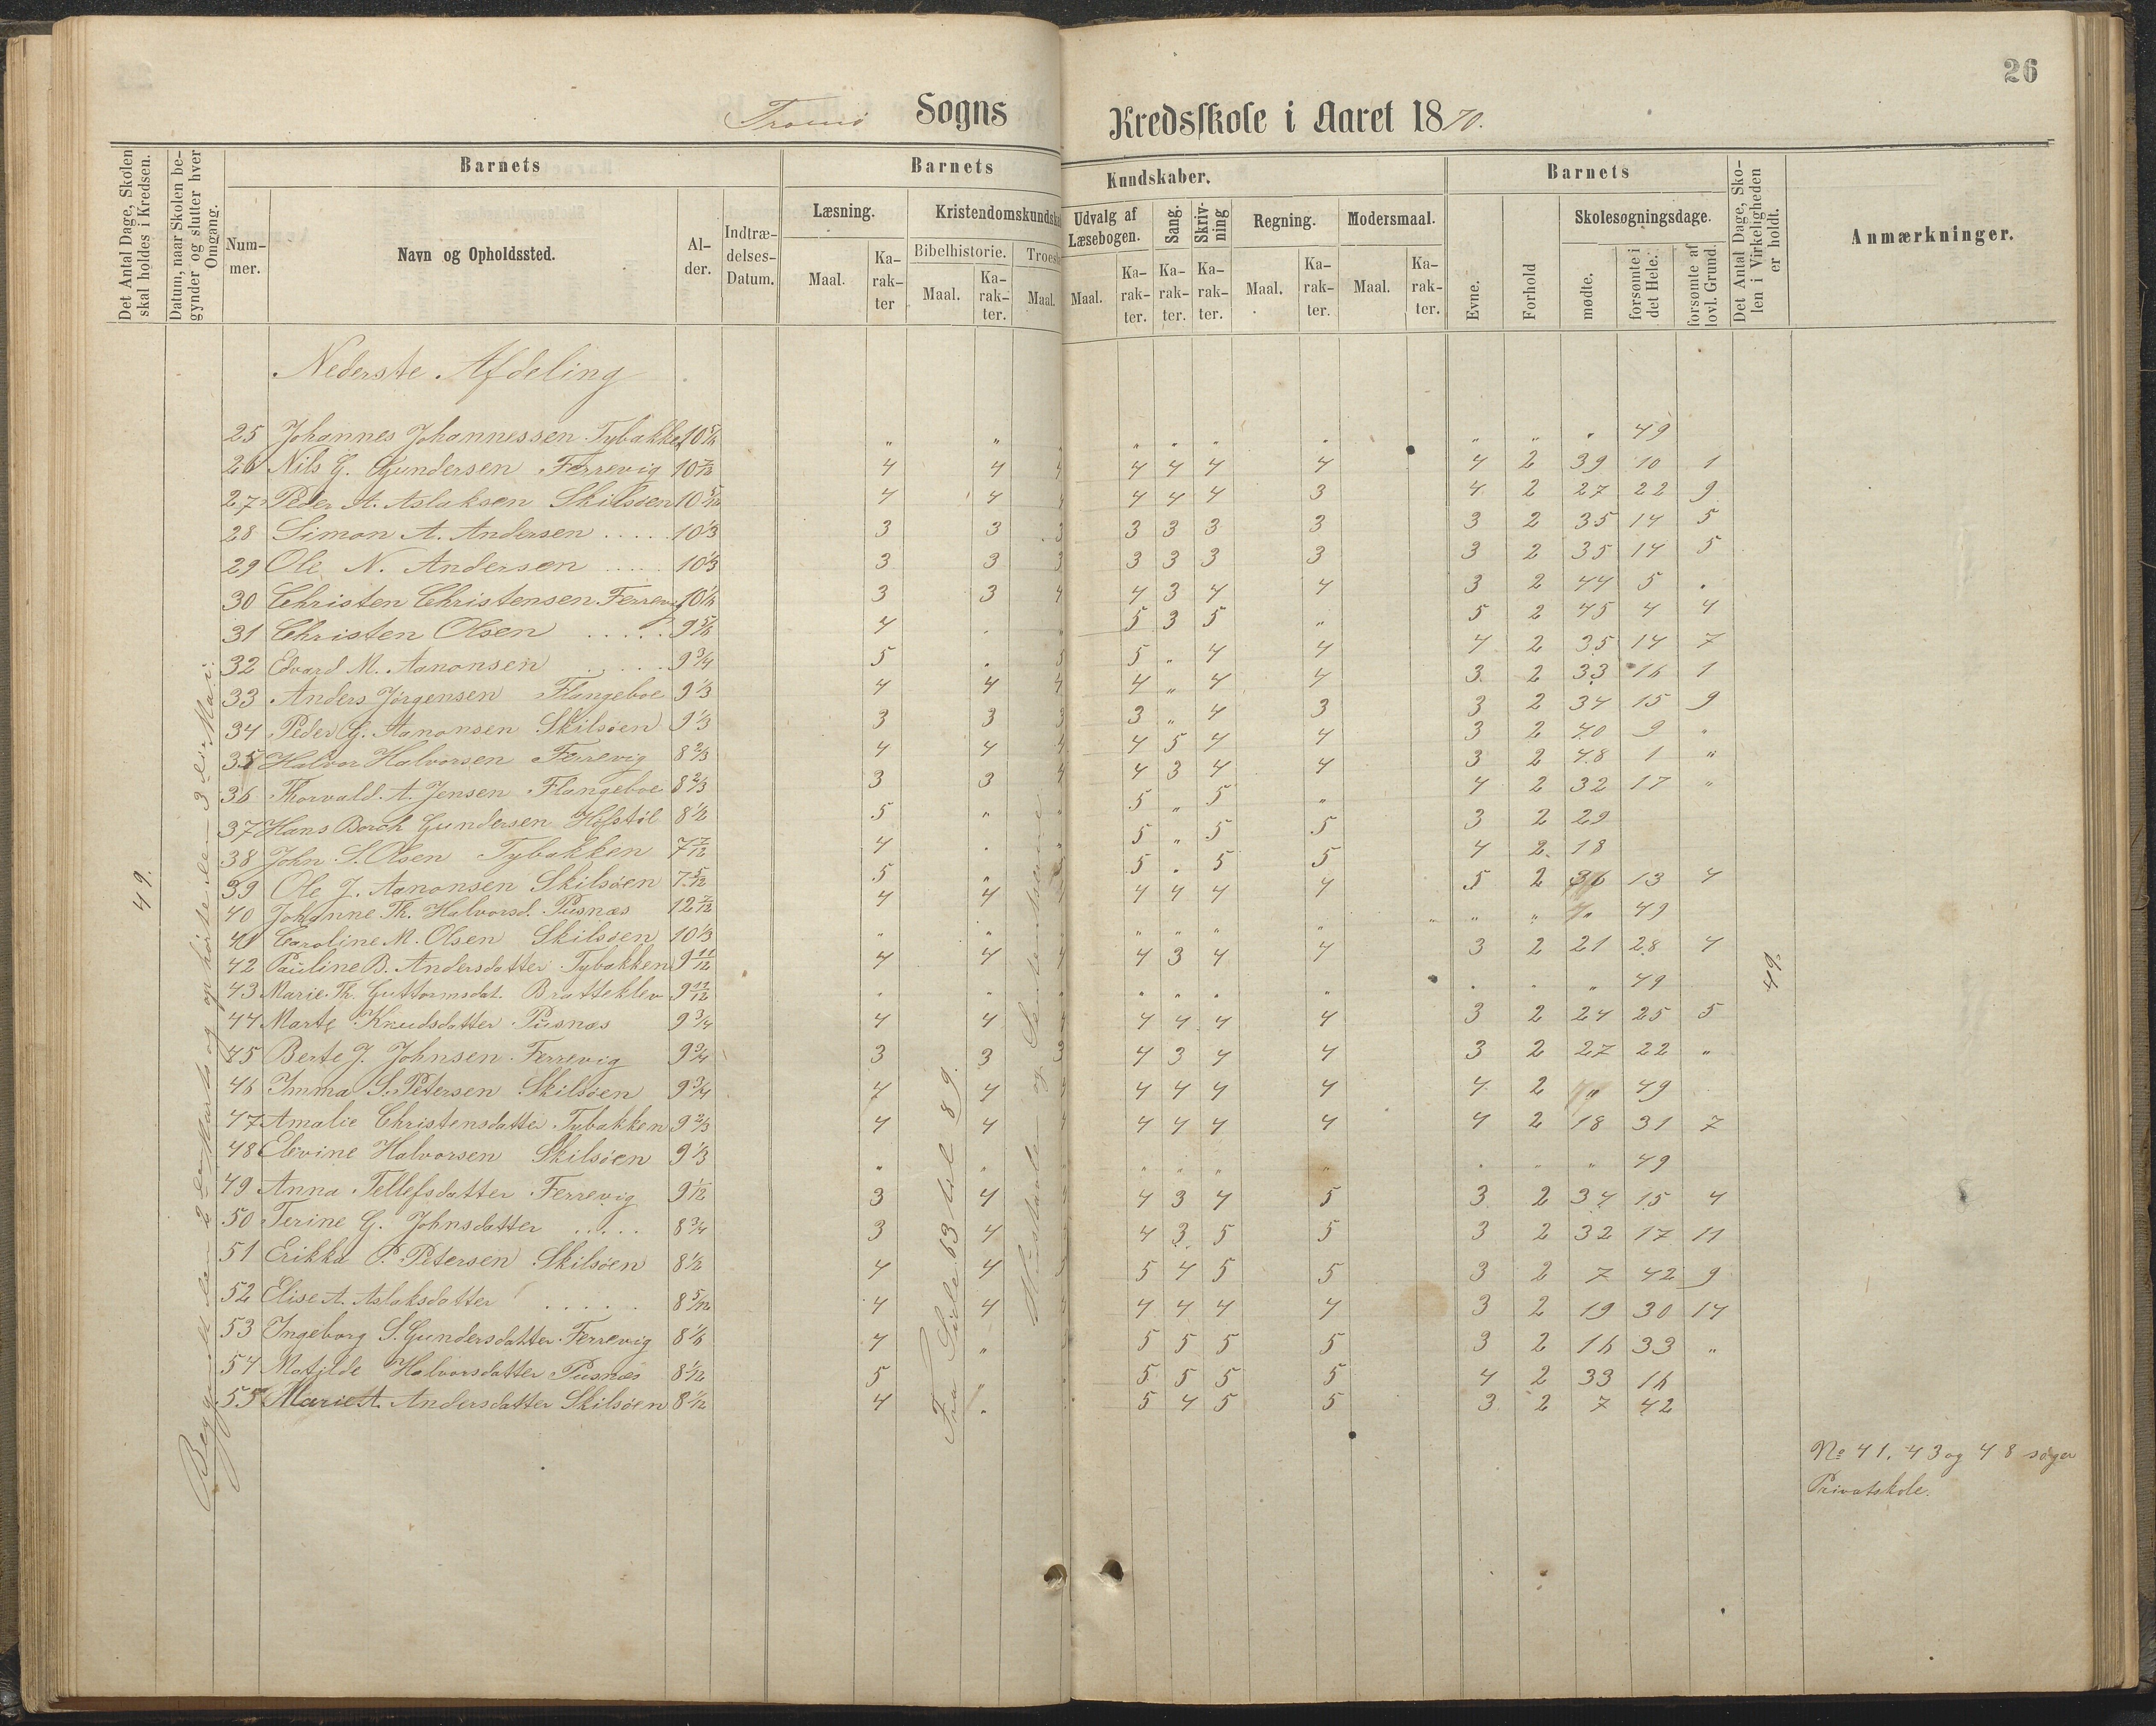 26
Tromø Sogns Kredsskole i Aaret 1870.
Det Antal Dage, Skolen skal holdes i Kredsen.
Datum, naar Skolen begynder og slutter hver Omgang.
Barnets
Nummer.
Navn og Opholdssted.
Alder.
Indtrædelses-Datum.
Barnets Kundskaber.
Læsning.
Maal.
Karakter
Kristendomskundska
Bibelhistorie.
Maal.
Karakter.
Troesl
Maal.
Udvalg af Læsebogen.
Maal.
Karakter.
Sang.
Karakter.
Skrivning
Karakter.
Regning.
Maal.
Karakter.
Modersmaal.
Maal.
Karakter.
Barnets
Evne.
Forhold
Skolesøgningsdage.
mødte.
forsømte i det Hele.
forsømte af lovl. Grund.
Det Antal Dage, Skolen i Virkeligheden er holdt.
Anmærkninger.
Nederste Afdeling
25 Johannes Johannessen Tybakken 10 5/6 " " " " " " " " " 49
26 Nils G. Gundersen Ferrevig 10 7/12 4 4 4 4 4 4 4 4 2 39 10 1
27 Peder A. Aslaksen Skilsøen 10 5/12 4 4 4 4 4 4 3 4 2 27 22 9
28 Simon A. Andersen ..... 10 1/3 3 3 3 3 3 3 3 3 2 35 14 5
29 Ole N. Andersen ..... 10 1/3 3 3 3 3 3 3 3 3 2 35 14 5
30 Christen Christensen Ferrevig 10 1/6 3 3 4 4 3 4 4 3 2 44 5 "
31 Christen Olsen ..... 9 5/6 4 " " 5 3 5 " 5 2 45 4 4
32 Edvard M. Aanonsen ..... 9 3/4 5 " 5 5 " 4 4 4 2 35 14 7
33 Anders Jørgensen Flangeboe 9 1/3 4 4 4 4 " 4 4 3 2 33 16 1
34 Peder G. Aanonsen Skilsøen 9 1/3 3 3 3 3 " 4 3 3 2 34 15 9
35 Halvor Halvorsen Ferrevig 8 2/3 4 4 4 4 5 4 4 3 2 40 9 "
36 Thorvald A. Jensen Flangeboe 8 2/3 3 3 4 4 3 4 4 3 2 48 1 "
37 Hans Borch Gundersen Hofstøl 8 1/2 5 " " 5 " 5 " 4 2 32 17 "
38 John S. Olsen Tybakken 7 7/12 4 " " 5 " 5 5 3 2 29
39 Ole J. Aanonsen Skilsøen 7 5/12 5 " 5 5 " 5 5 4 2 18
40 Johanne Th. Halvorsd. Pusnæs 12 7/12 4 4 4 4 4 4 4 5 2 36 13 4
41 Caroline M. Olsen Skilsøen 10 1/3 " " " " " " " " " 49
42 Pauline B. Andersdatter Tybakken 9 11/12 4 4 4 4 3 4 4 3 2 21 28 4
43 Marie Th. Guttormsdat. Bratteklev 9 11/12 " " " " " " " " " 49
44 Marte Knudsdatter Pusnæs 9 3/4 4 4 4 4 4 4 4 3 2 24 25 5
45 Berte J. Johnsen Ferrevig 9 3/4 3 3 3 4 3 4 4 3 2 27 22 "
46 Imma S. Petersen Skilsøen 9 3/4 4 4 4 4 4 4 4 4 2 " 49
47 Amalie Christensdatter Tybakken 9 2/3 4 4 4 4 4 4 4 4 2 18 31 7
48 Elevine Halvorsen Skilsøen 9 1/3 " " " " " " " " " 49
49 Anna Tellefsdatter Ferrevig 9 1/12 3 4 4 4 3 4 5 3 2 34 15 4
50 Terine G. Johnsdatter ..... 8 3/4 3 4 4 3 5 5 3 2 32 17 11
51 Erikka P. Petersen Skilsøen 8 1/2 4 4 5 5 4 5 5 3 2 7 42 9
52 Elise A. Aslaksdatter ...... 8 5/12 4 4 4 4 4 4 4 3 2 19 30 14
53 Ingeborg S. Gundersdatter Ferrevig 8 1/6 4 " 5 5 5 5 3 2 16 33 "
54 Matilde Halvorsdatter Pusnæs 8 1/12 5 " 5 5 5 5 4 2 33 16
55 Marie A. Andersdatter Skilsøen 8 1/12 4 " 5 4 5 5 3 2 7 42
49.
Begyndt den 2den Marts og ophørte den 3die Mai.
Fra Side 63 til 89.
49.
No 41, 43 og 48 søger
Privatskole.